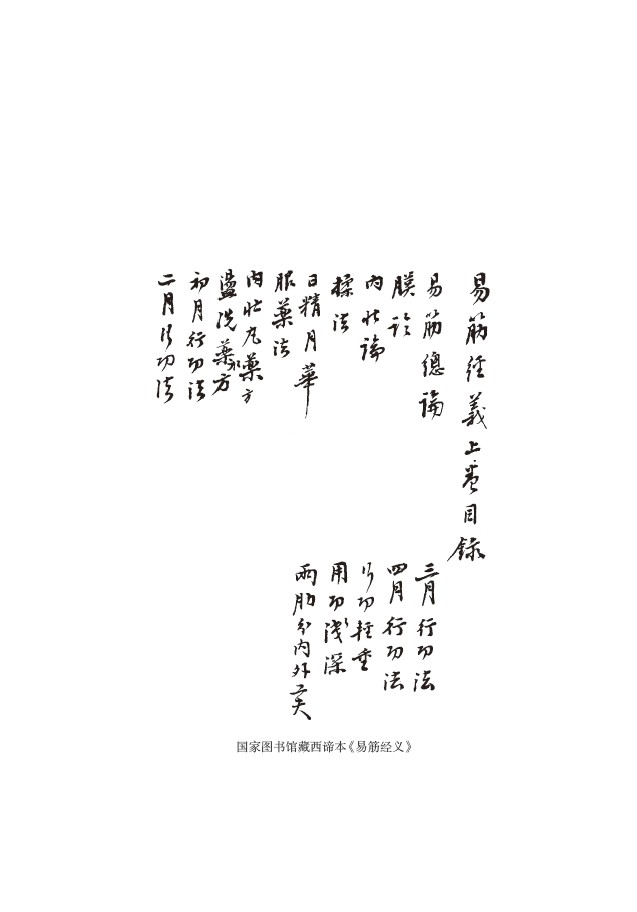 易筋經義上卷目錄
易筋總論
膜論
內壯論
揉法
日精月華
服藥法
內壯丸藥方
盪洗藥水方
初月行功法
二月行功法
三月行功法
四月行功法
行功輕重
用功淺深
兩肋分內外功夫
国家图书馆藏西谛本《易筋经义》